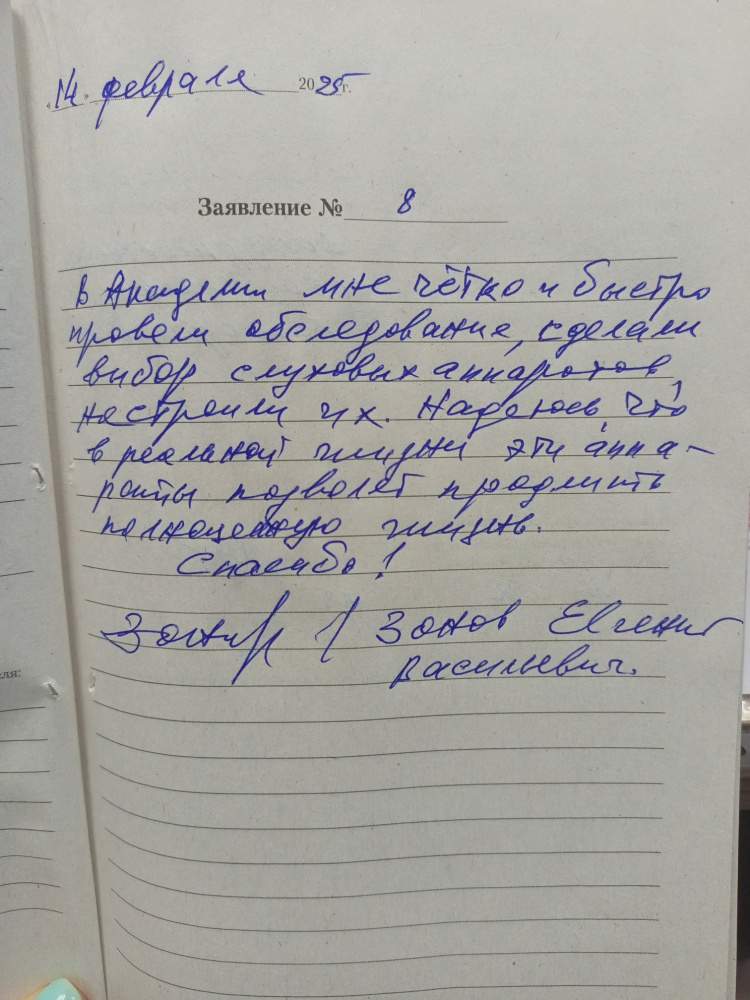 «14» февраля 2025г.
Заявление № 8
В Академии мне чётко и быстро
провели обследование, сделали
выбор слуховых аппаратов,
настроили их. Надеюсь, что
в реальной жизни эти аппа-
раты позволят продлить
полноценную жизнь.
Спасибо!
/ Зонов Евгений
Васильевич.
ля: